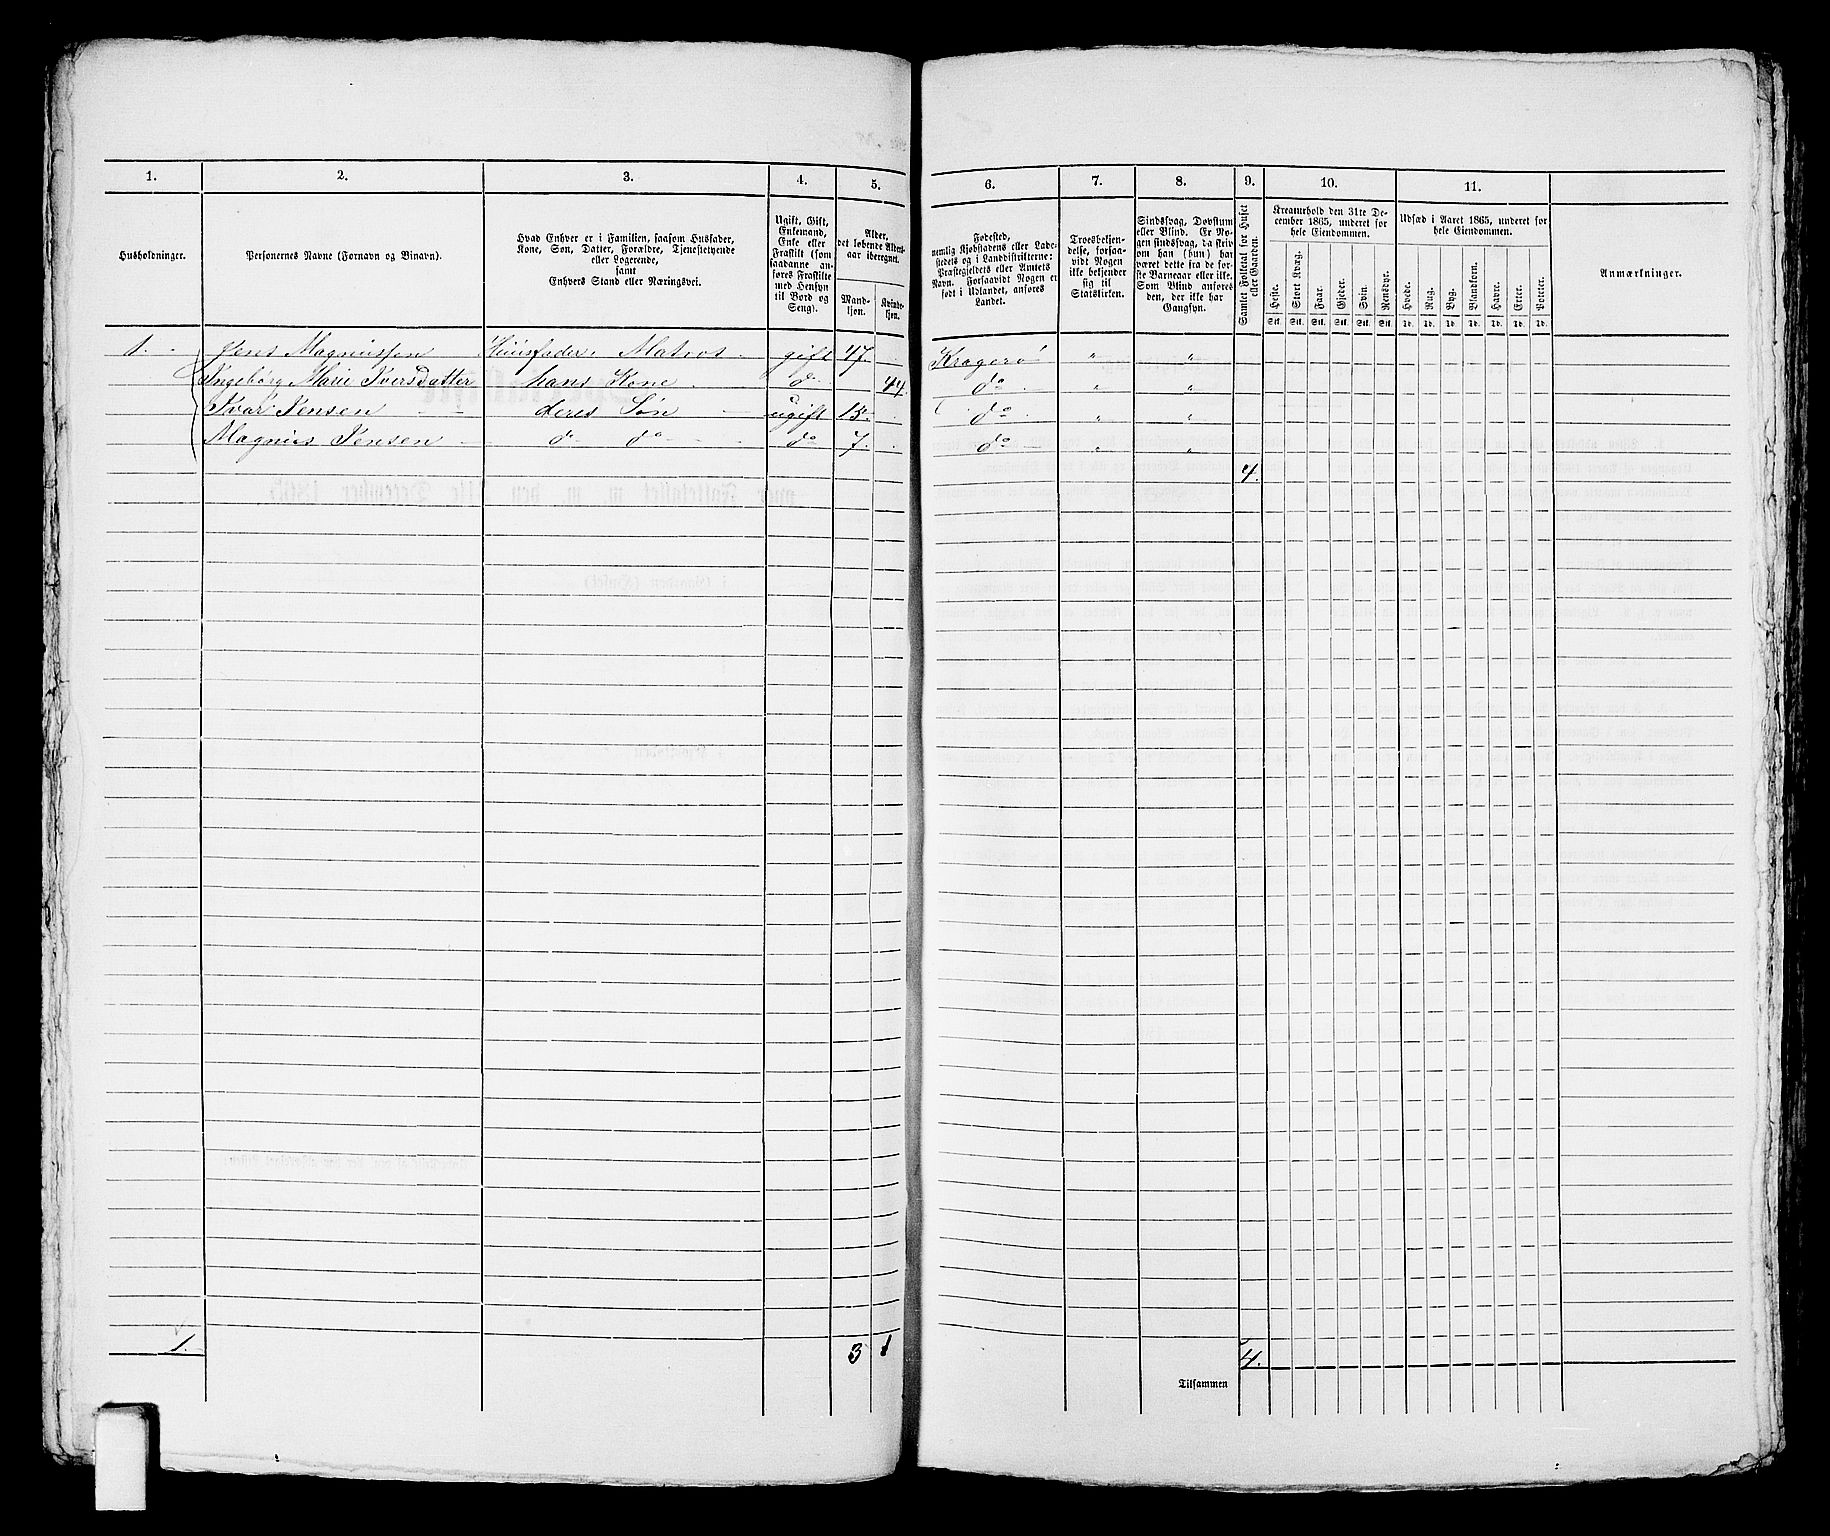 1. 2. 3. 4. 5. 6. 7. 8. 9. 10. 11.
Husholdninger.
Personernes Navne (Fornavn og Binavn).
Hvad Enhver er i Familien, saasom Husfader,
Kone, Søn, Datter, Forældre, Tjenestetyende
eller Logerende,
samt
Enhvers Stand eller Næringsvei.
Ugift, Gift,
Enkemand,
Enke eller
Fraskilt (som
saadanne an-
føres Fraskilte
med Hensyn
til Bord og
Seng).
Alder,
det løbende Alders-
aar iberegnet.
Mand-
kjøn.
Kvinde-
kjøn.
Fødested,
nemlig Kjøbstadens eller Lade-
stedets og i Landdistrikterne:
Præstegjeldets eller Amtets
Navn. Forsaavidt Nogen er
født i Udlandet, anføres
Landet.
Troesbekjen-
delse, forsaa-
vidt Nogen
ikke bekjender
sig til
Statskirken.
Sindssvag, Døvstum
eller Blind. Er No-
gen sindssvag, da skriv
om han (hun) har
været dette fra de før-
ste Barneaar eller ikke.
Som Blind anføres
den, der ikke har
Gangsyn.
Samlet Folketal for Huset
eller Gaarden.
Kreaturhold den 31te De-
cember 1865, underet for
hele Eiendommen.
Heste.
Stort Kvæg.
Faar.
Gjeder.
Svin.
Rensdyr.
Stk. Stk. Stk. Stk. Stk. Stk.
Udsæd i Aaret 1865, underet for
hele Eiendommen.
Hvede.
Rug.
Byg.
Blandkorn.
Havre.
Erter.
Poteter.
Td. Td. Td. Td. Td. Td. Td.
Anmærkninger.
1. Jens Magnussen Huusfader, Matros gift 47. Kragerø " "
Ingebørg Marie Iversdatter hans Kone do 44. do " "
Ivar Jensen deres Søn ugift 15. do " "
Magnus Jensen do do do 7. do " "
4.
1. 3 1 4.
Tilsammen